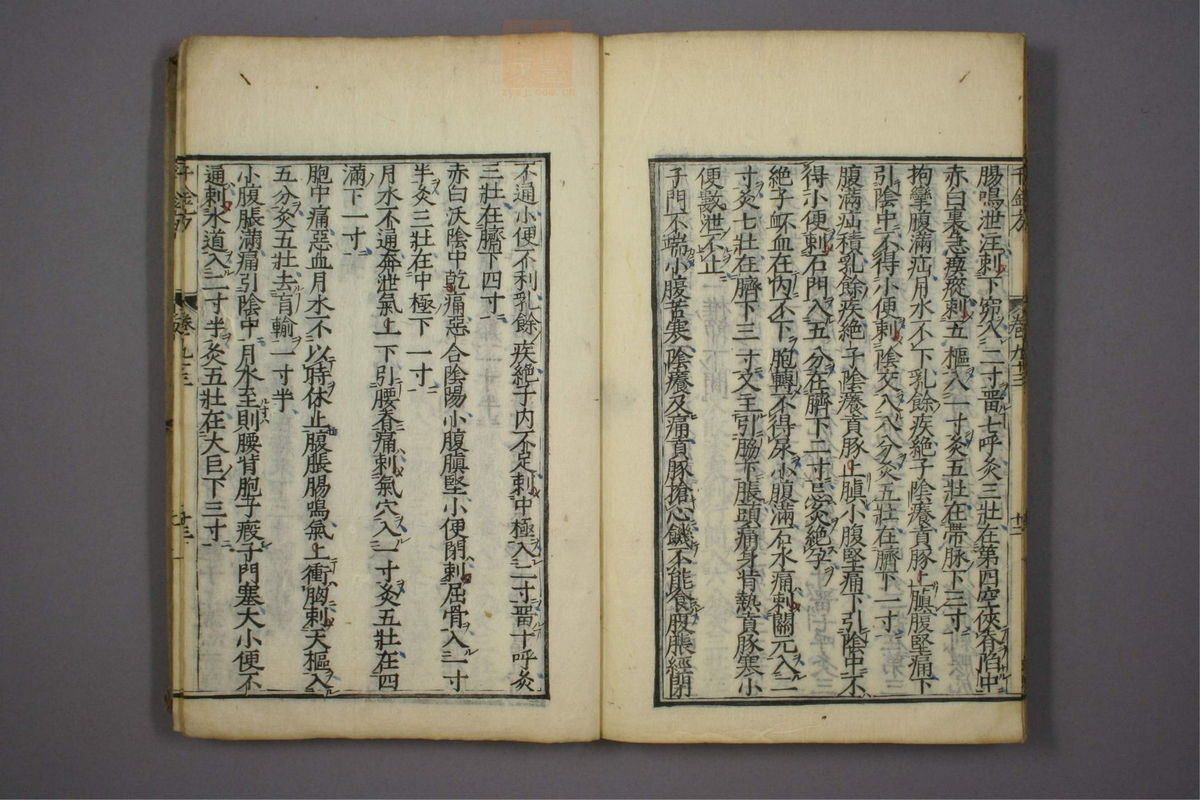 腸鳴泄注刺下窌入二寸畱七呼灸三壯在第四空俠脊陷中
赤白裏急瘈瘲刺五樞入一寸灸五壯在帶脉下三寸
拘攣腹滿疝月水不下乳餘疾絕子陰癢賁豚上䐜腹堅痛下
引陰中不得小便刺陰交入八分灸五壯在臍下一寸
腹滿疝積乳餘疾絕子陰癢賁豚上䐜小腹堅痛下引陰中不
得小便刺石門入五分在臍下二寸忌灸絕孕
絕子衃血在內不下胞轉不得尿小腹滿石水痛刺關元入二
寸灸七壯在臍下三寸又主引脇下脹頭痛身背熱賁豚寒小
便數泄不止
子門不端小腹苦寒陰癢及痛賁豚搶心饑不能食腹脹經閉
不通小便不利乳餘疾絕子內不足刺中極入二寸畱十呼灸
三壯在臍下四寸
赤白沃陰中乾痛惡合陰陽小腹䐜堅小便閉刺屈骨入一寸
半灸三壯在中極下一寸
月水不通奔泄氣上下引腰脊痛刺氣穴入一寸灸五壯在四
滿下一寸
胞中痛惡血月水不以時休止腹脹腸鳴氣上衝胷刺天樞入
五分灸五壯去肓輸一寸半
小腹脹滿痛引陰中月水至則腰背胞子瘕子門塞大小便不
通刺水道入二寸半灸五壯在大巨下三寸